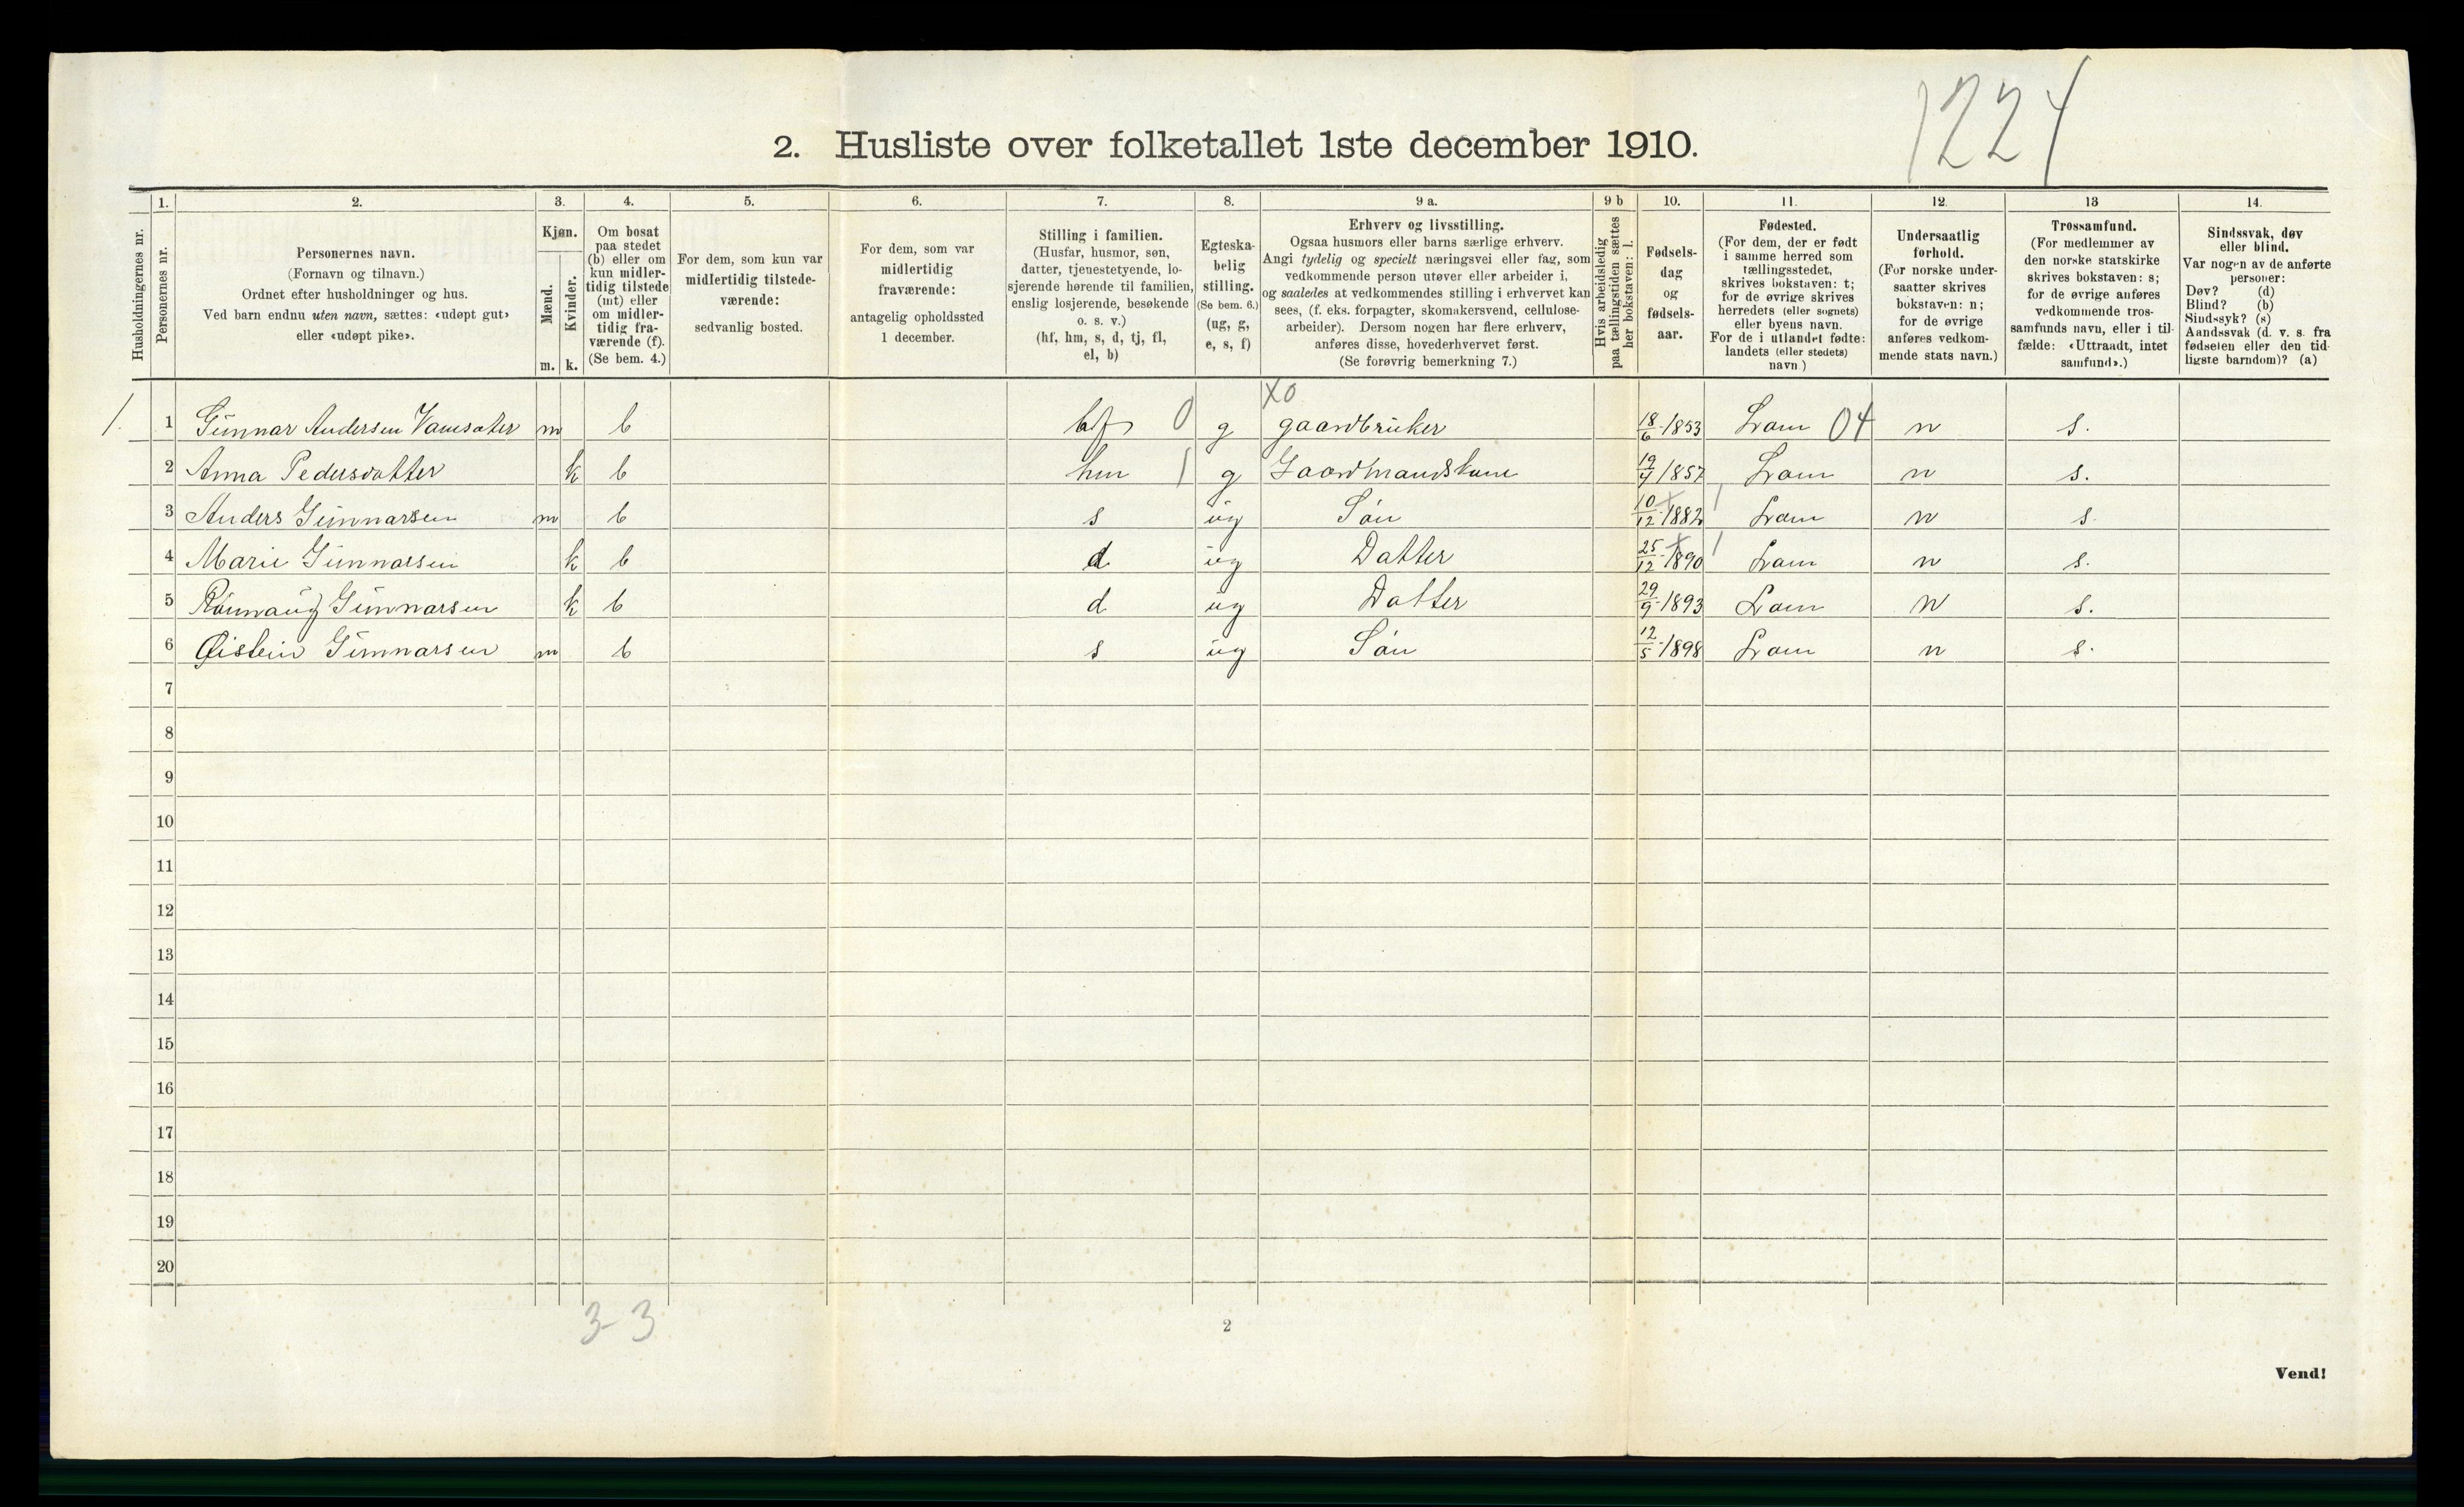 1224
2. Husliste over folketallet 1ste december 1910.
1. 2. 3. 4. 5. 6. 7. 8. 9 a. 9 b 10. 11. 12. 13 14.
Husholdningernes nr.
Personernes nr.
Personernes navn.
(Fornavn og tilnavn.)
Ordnet efter husholdninger og hus.
Ved barn endnu uten navn, sættes: «udøpt gut»
eller «udøpt pike».
Kjøn.
Mænd.
Kvinder.
m. k.
Om bosat
paa stedet
(b) eller om
kun midler-
tidig tilstede
(mt) eller
om midler-
tidig fra-
værende (f).
(Se bem. 4.)
For dem, som kun var
midlertidig tilstede-
værende:
sedvanlig bosted.
For dem, som var
midlertidig
fraværende:
antagelig opholdssted
1 december.
Stilling i familien.
(Husfar, husmor, søn,
datter, tjenestetyende, lo-
sjerende hørende til familien,
enslig losjerende, besøkende
o. s. v.)
(hf, hm, s, d, tj, fl,
el, b)
Egteska-
belig
stilling.
(Se bem. 6.)
(ug, g,
e, s, f)
Erhverv og livsstilling.
Ogsaa husmors eller barns særlige erhverv.
Angi tydelig og specielt næringsvei eller fag, som
vedkommende person utøver eller arbeider i,
og saaledes at vedkommendes stilling i erhvervet kan
sees, (f. eks. forpagter, skomakersvend, cellulose-
arbeider). Dersom nogen har flere erhverv,
anføres disse, hovederhvervet først.
(Se forøvrig bemerkning 7.)
Hvis arbeidsledig
paa tællingstiden sættes
her bokstaven: l.
Fødsels-
dag
og
fødsels-
aar.
Fødested.
(For dem, der er født
i samme herred som
tællingsstedet,
skrives bokstaven: t;
for de øvrige skrives
herredets (eller sognets)
eller byens navn.
For de i utlandet fødte:
landets (eller stedets)
navn.)
Undersaatlig
forhold.
(For norske under-
saatter skrives
bokstaven: n;
for de øvrige
anføres vedkom-
mende stats navn.)
Trossamfund.
(For medlemmer av
den norske statskirke
skrives bokstaven: s;
for de øvrige anføres
vedkommende tros-
samfunds navn, eller i til-
fælde: «Uttraadt, intet
samfund».)
Sindssvak, døv
eller blind.
Var nogen av de anførte
personer:
Døv? (d)
Blind? (b)
Sindssyk? (s)
Aandssvak (d. v. s. fra
fødselen eller den tid-
ligste barndom)? (a)
X0
1. 1 Gunnar Andersen m b hf 0 g gaardbruker 18/6-1853 Lom 04 n s.
2 Anna Pedersdatter k b hm 1 g Gaardmandskone 19/4 1857 Lom n s.
3 Anders Gunnarsen m b s ug Søn 10/12-1882 Lom n s.
4 Marie Gunnarsen k b d ug Datter 25/12-1890 Lom n s.
5 Rønnaug Gunnarsen k b d ug Datter 29/9-1893 Lom n s.
6 Øistein Gunnarsen m b s ug Søn 12/5-1898 Lom n s.
7
8
9
10
11
12
13
14
15
16
17
18
19
20
3-3
2
Vend!